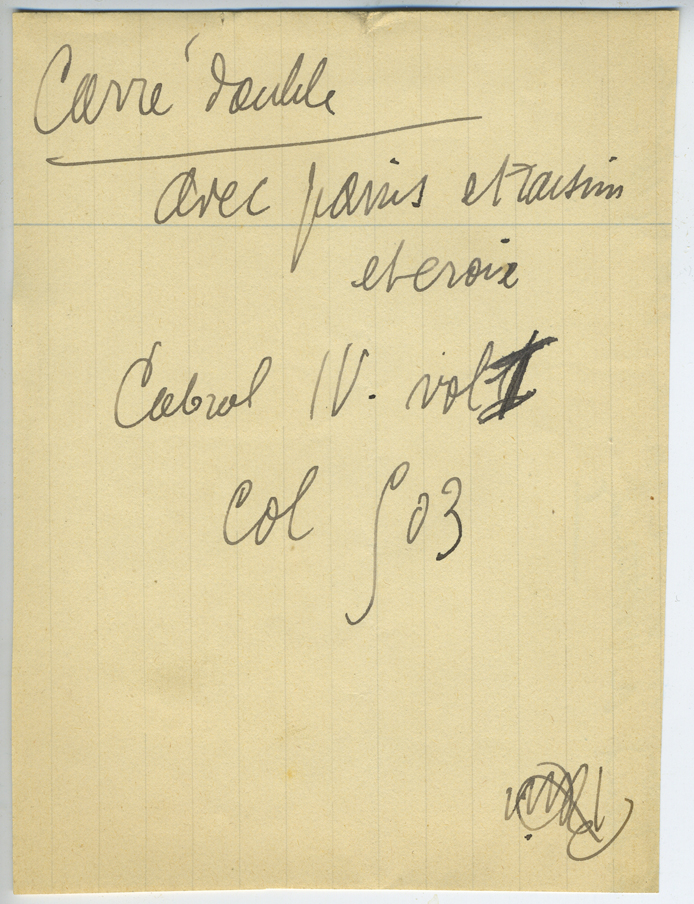 Carré double
avec pains et raisin
et croix
Cabrol IV. vol I
Col 503